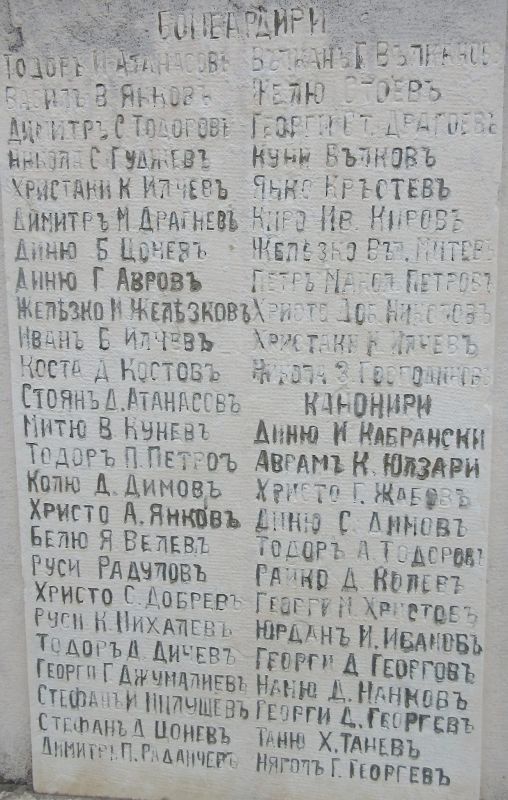 БОМБАРДИРИ
ТОДОРЪ И. АТАНАСОВЪ
ВАСИЛЪ В. ЯНКОВЪ
ДИМИТРЪ С. ТОДОРОВЪ
НИКОЛА С. ГУДЖЕВЪ
ХРИСТАКИ К. ИЛЧЕВЪ
ДИМИТРЪ М. ДРАГНЕВЪ
ДИНЮ Б. ЦОНЕВЪ
ДИНЮ Г. АВРОВЪ
ЖЕЛѢЗКО И. ЖЕЛѢЗКОВЪ
ИВАНЪ Б. ИЛЧЕВЪ
КОСТА Д. КОСТОВЪ
СТОЯНЪ Д. АТАНАСОВЪ
МИТЮ В. КУНЕВЪ
ТОДОРЪ П. ПЕТРОЪ
КОЛЮ Д. ДИМОВЪ
ХРИСТО А. ЯНКОВЪ
БЕЛЮ Я. ВЕЛЕВЪ
РУСИ РАДУЛОВЪ
ХРИСТО С. ДОБРЕВЪ
РУСИ К. МИХАЛЕВЪ
ТОДОРЪ Д. ДИЧЕВЪ
ГЕОРГИ Г. ДЖУМАЛИЕВЪ
СТЕФАНЪ И.
СТЕФАНЪ Д. ЦОНЕВЪ
ДИМИТРЪ П. РАДАНЧЕВЪ
ВЪЛКАНЪ Г. ВЪЛКАНОВЪ
ЖЕЛЮ СТОЕВЪ
ГЕОРГИ СТ. ДРАГОЕВЪ
КУНИ ВЪЛКОВЪ
ЯНКО КРЪСТЕВЪ
КИРО ИВ. КИРОВЪ
ЖЕЛѢЗКО ВЪЛ. МИТЕВЪ
ПЕТРЪ МАНОЛ. ПЕТРОВЪ
ХРИСТО ДОБ. НИКОЛОВЪ
ХРИСТАКИ К. ИЛЧЕВЪ
НИКОЛА З. ГОСПОДИНОВЪ
КАНОНИРИ
ДИНЮ И. КАБРАНСКИ
АВРАМЪ К. ЮЛЗАРИ
ХРИСТО Г. ЖАБОВЪ
ДИНЮ С. ДИМОВЪ
ТОДОРЪ А. ТОДОРОВЪ
РАЙКО Д. КОЛЕВЪ
ГЕОРГИ И. ХРИСТОВЪ
ЮРДАНЪ И. ИВАНОВЪ
ГЕОРГИ Д. ГЕОРГОВЪ
НАНЮ Д. НАНКОВЪ
ГЕОРГИ Д. ГЕОРГЕВЪ
ТАНЮ Х. ТАНЕВЪ
НЯГОЛЪ Г. ГЕОРГЕВЪ